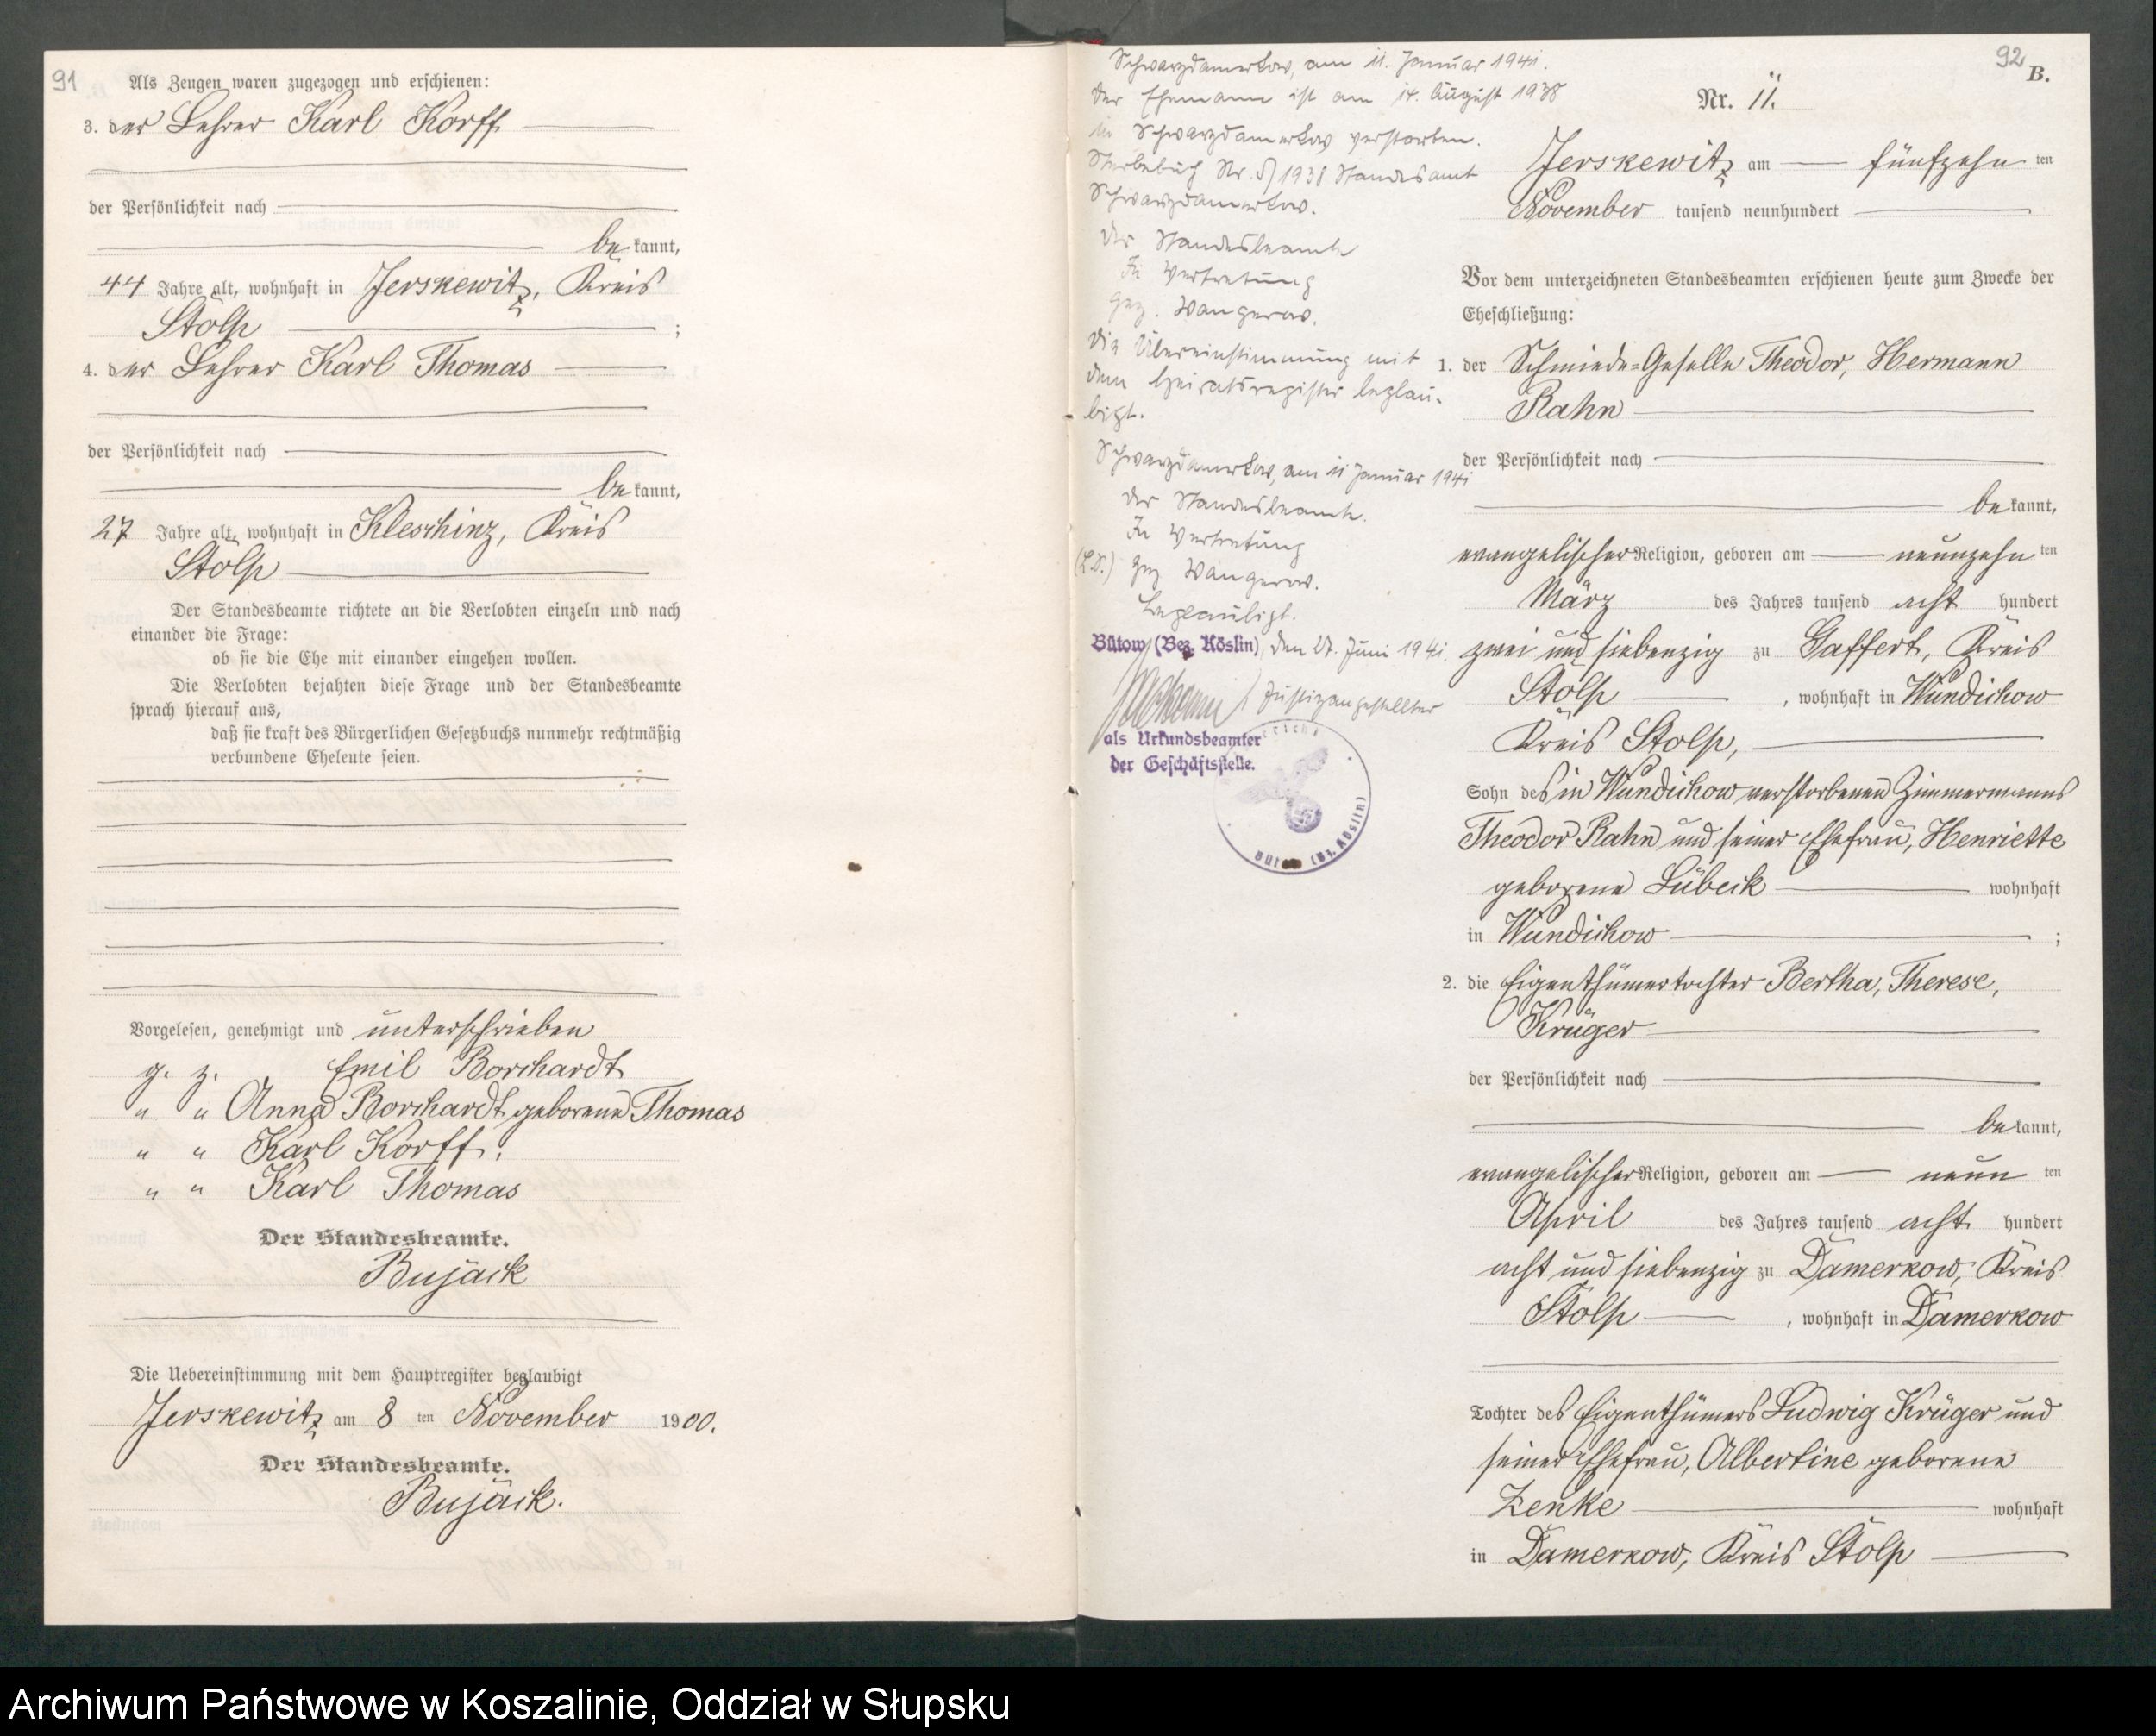 91
Als Zeugen waren zugezogen und erschienen:
3. der Lehrer Karl Korff
der Persönlichkeit nach
bekannt,
44 Jahre alt, wohnhaft in Jerskewitz, Kreis
Stolp ;
4. der Lehrer Karl Thomas
der Persönlichkeit nach
bekannt,
27 Jahre alt, wohnhaft in Kleschinz, Kreis
Stolp
Der Standesbeamte richtete an die Verlobten einzeln und nach
einander die Frage:
ob sie die Ehe mit einander eingehen wollen.
Die Verlobten bejahten diese Frage und der Standesbeamte
sprach hierauf aus,
daß sie kraft des Bürgerlichen Gesetzbuchs nunmehr rechtmäßig
verbundene Eheleute seien.
Vorgelesen, genehmigt und unterschrieben
g. z. Emil Borchardt
" " Anna Borchardt geborene Thomas
" " Karl Korff.
" " Karl Thomas
Der Standesbeamte.
Bujack
Die Uebereinstimmung mit dem Hauptregister beglaubigt
Jerskewitz am 8 ten November 1900.
Der Standesbeamte.
Bujack.
Schwarzdamerkow, am 11. Januar 1941.
Der Ehemann ist am 14. August 1938
in Schwarzdamerkow verstorben.
Sterbebuch Nr. 1938 Standesamt
Schwarzdamerkow.
Der Standesbeamte
In Vertretung
gez. Wangerow.
Die Übereinstimmung mit
dem Heiratsregister beglau-
bigt.
Schwarzdamerkow, am 11 Januar 1941
Der Standesbeamte.
In Vertretung
(L.S.) gez Wangerow.
Beglaubigt.
Bütow (Bez. Köslin), den 27. Juni 1941.
Justizangestellter
als Urkundsbeamter
der Geschäftsstelle.
Bütow (Bz. Köslin)
92
B.
Nr. 11.
Jerskewitz am fünfzehnten
November tausend neunhundert
Vor dem unterzeichneten Standesbeamten erschienen heute zum Zwecke der
Eheschließung:
1. der Schmiede=Geselle Theodor, Hermann
Rahn
der Persönlichkeit nach
bekannt,
evangelischer Religion, geboren am neunzehnten
März des Jahres tausend acht hundert
zwei und siebenzig zu Gaffert, Kreis
Stolp , wohnhaft in Wundichow
Kreis Stolp,
Sohn des in Wundichow verstorbenen Zimmermanns
Theodor Rahn und seiner Ehefrau, Henriette
geborene Lübeck wohnhaft
in Wundichow ;
2. die Eigenthümertochter Bertha, Therese,
Krüger
der Persönlichkeit nach
bekannt,
evangelischer Religion, geboren am neunten
April des Jahres tausend acht hundert
acht und siebenzig zu Damerkow, Kreis
Stolp , wohnhaft in Damerkow
Tochter des Eigenthümers Ludwig Krüger und
seiner Ehefrau, Albertine geborene
Zenke wohnhaft
in Damerkow, Kreis Stolp
Archiwum Państwowe w Koszalinie, Oddział w Słupsku